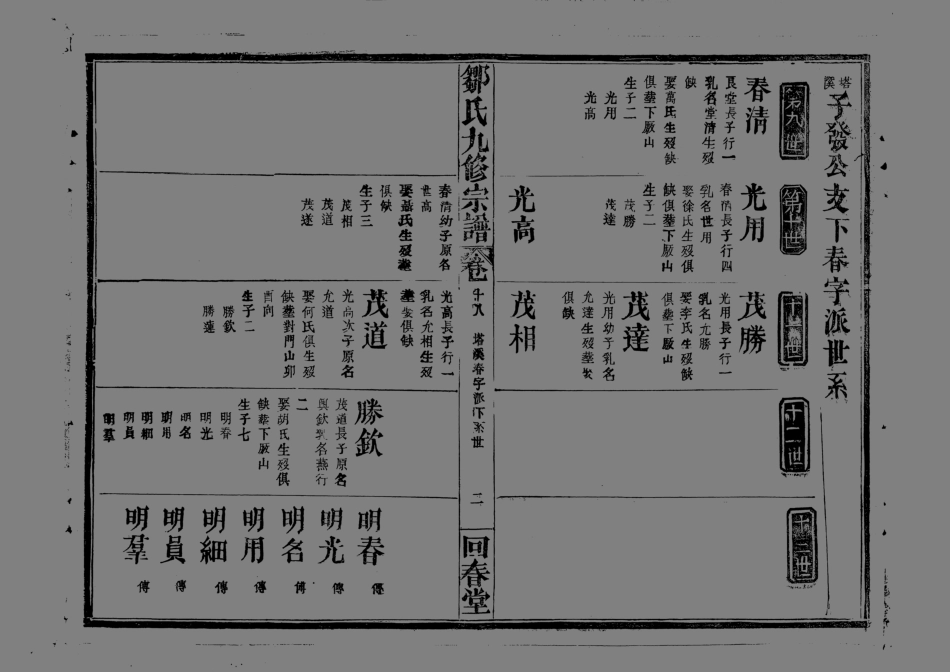 塔溪
子發公支下春字派世系
第九世
春清
艮堂長子行一
乳名堂清生歿
缺
娶萬氏生歿缺
俱塟下厫山
生子二
光用
光高
第十世
光用
春清長子行四
乳名世用
娶徐氏生歿俱
缺俱塟下厫山
生子二
茂勝
茂達
光高
春清幼子原名
世高
娶聶氏生歿塟
俱缺
生子三
茂相
茂道
茂遂
十一世
茂勝
光用長子行一
乳名尤勝
娶李氏生歿缺
俱塟下厫山
茂達
光用幼子乳名
允達生歿塟娶
俱缺
茂相
光高長子行一
乳名尤相生歿
塟娶俱缺
茂道
光高次子原名
允道
娶何氏俱生歿
缺塟對門山卯
酉向
生子二
勝欽
勝蓮
十二世
勝欽
茂道長子原名
興欽乳名燕行
二
娶胡氏生歿俱
缺塟下厫山
生子七
明春
明光
明名
明用
明細
明員
明羣
十三世
明春 傳
明光 傳
明名 傳
明用 傳
明細 傳
明員 傳
明羣 傳
鄒氏九修宗譜
卷十八 塔溪春字派下系世
二
回春堂